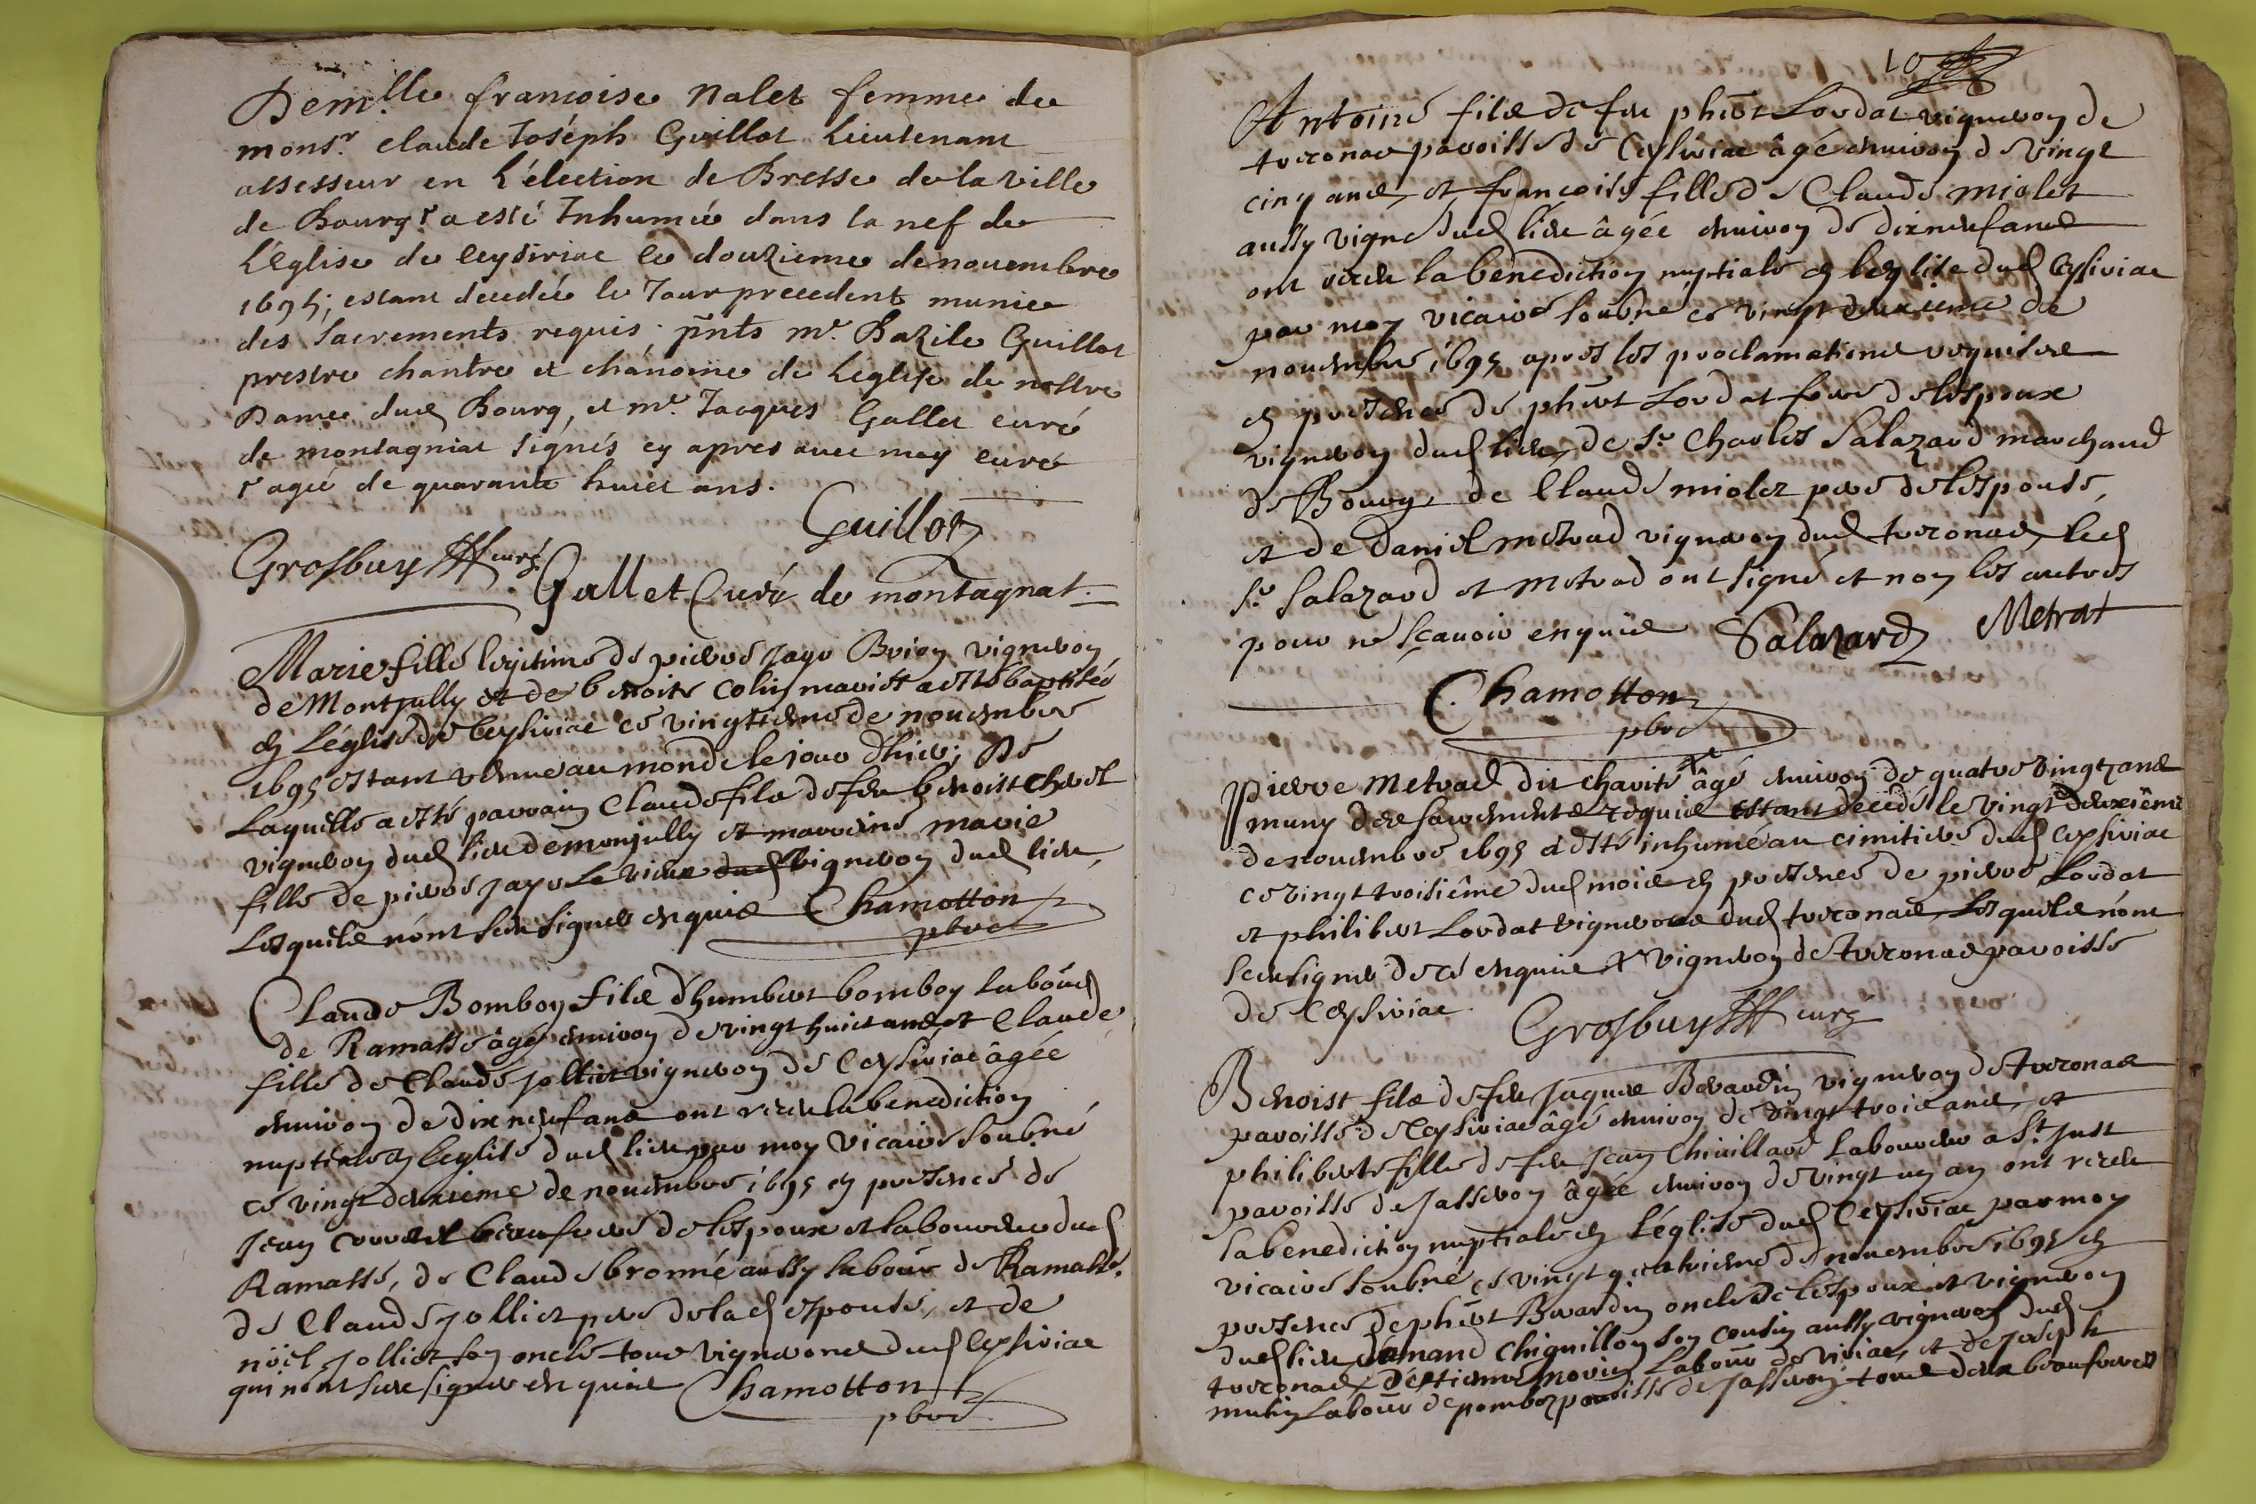 Dem.lle francoise Nalet femme de
mons.r claude Joseph Guillot Lieutenant
assesseur en L'élection de Bresse de la ville
de Bourg r a esté Inhumée dans la nef de
L'Eglise de ceysiriac le douzieme de novembre
1695; estant decedée le Jour precedent munie
des sacrements requis; pñts m.r Bazile Guillot
prestre chantre et chanoine de L'eglise de nostre
Dame dud Bourg, et m.r Jacques Gallet curé
de montagniat signés cy apres avec moy curé
r agée de quarante huict ans.
Guillot
Grosbuy curé
Gallet Curé de montagnat.
Marie fille legitime de pierre Jayr Brion vigneron
de Montjully et de benoite Colin mariés a esté baptisée
en L'église de Ceysiriac ce vingtiéme de novembre
1695 estant venue au monde le jour d'hier; De
Laquelle a esté parrain Claude fils de feu benoist Chevel
vigneron dud lieu de monjully et marreine marie
fille de pierre Jayr Le vieux vigneron dud lieu,
Lesquels n'ont sceu signer enquis Chamotton
pbre
Claude Bomboy fils d'humbert bomboy labour
de Ramasse âgé environ de vingt huict ans et Claude
fille de Claude Jolliet vigneron de Ceysiriac âgée
environ de dix neuf ans ont receu la benediction
nuptiale en L'eglise dud lieu par moy vicaire soubñé
ce vingt deuxieme de novembre 1695 en presence de
Jean beaufrere de l'espoux et laboureur dud
Ramasse, de Claude bronné aussy labour de Ramasse.
de Claude Jolliet pere de lad espouse, et de
nöel Jolliet son oncle tous vignerons dud Ceysiriac
qui n'ont sceu signer enquis Chamotton
pbre
10
Antoine fils de feu phêrt Lordat vigneron de
treconas paroisse de Ceysiriac âgé environ de vingt
cinq ans, et francoise fille de Claude miolet
aussy vigne dud lieu âgée environ de dix neuf ans
ont receu la bénediction nuptiale en L'eglise dud Ceysiriac
par moy vicaire soubñé ce vingt deuxieme de
novembre 1695 apres les proclamations requises
en presence de phêrt Lordat frere de l'espoux
vigneron dud lieu, de S.r Charles Salazard marchand
de Bourg, de Claude miolet pere de l'espouse,
et de Daniel metrad vigneron dud treconas, led
S.r Salazard et metrad ont signé et non les autres
pour ne sçavoir enquis Salazard Metrat
Chamotton
pbre
Pierre Metrad dit charité x âgé environ de quatre vingt ans
muny des sacrements requis estant decedé le vingt deuxiême
de novembre 1695 a esté inhumé au cimitiere dud Ceysiriac
ce vingt troisiême dud mois en presence de pierre Lordat
et philibert Lordat vignerons dud treconas, Lesquels n'ont
sceu signer de ce enquis x vigneron de treconas paroisse
de Ceysiriac Grosbuy curé
Benoist fils de feu Jaques Berardin vigneron de treconas
paroisse de Ceysiriac âgé environ de vingt trois ans, et
philiberte fille de feu Jean Chivillard Laboureur a S.t Just
paroisse de Jasseron âgée environ de vingt un an ont receu
la benediction nuptiale en L'église dud Ceysiriac par moy
vicaire soubñé ce vingt quatrieme de novembre 1695 en
presence de phêrt Berardin oncle de l'espoux et vigneron
dud lieu, Chiquillon son cousin aussy vigneron dud
treconas, d'estienne movin Labour de riviac, et de Joseph
mutin Labour de pombos paroisse de Jasseron, tous deux beaufreres